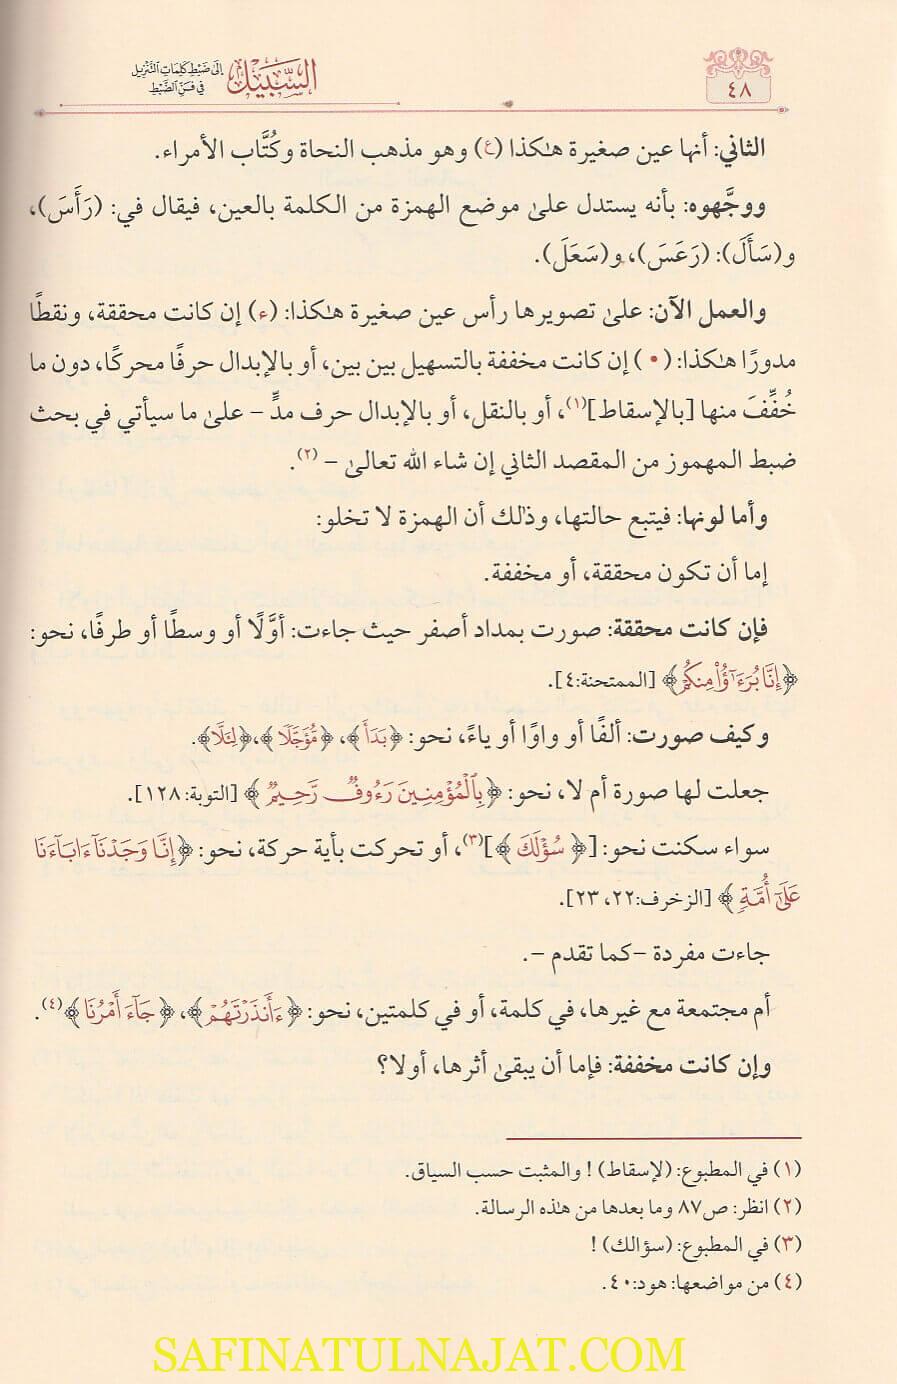 ٤٨
السَّبِيْل إلى ضَبْطِ كَلِمَاتِ التَّنْزِيلِ
في فَنِّ الضَّبْطِ
الثاني: أنها عين صغيرة هـٰكذا (ع) وهو مذهب النحاة وكُتَّاب الأمراء.
ووجَّهوه: بأنه يستدل علىٰ موضع الهمزة من الكلمة بالعين، فيقال في: (رَأَسَ)،
و(سَأَلَ): (رَعَسَ)، و(سَعَلَ).
والعمل الآن: علىٰ تصويرها رأس عين صغيرة هـٰكذا: (ء) إن كانت محققة، ونقطًا
مدورًا هـٰكذا: (•) إن كانت مخففة بالتسهيل بين بين، أو بالإبدال حرفًا محركًا، دون ما
خُفِّفَ منها [بالإسقاط](١)، أو بالنقل، أو بالإبدال حرف مدٍّ – علىٰ ما سيأتي في بحث
ضبط المهموز من المقصد الثاني إن شاء الله تعالىٰ – (٢).
وأما لونها: فيتبع حالتها، وذٰلك أن الهمزة لا تخلو:
إما أن تكون محققة، أو مخففة.
فإن كانت محققة: صورت بمداد أصفر حيث جاءت: أوَّلًا أو وسطًا أو طرفًا، نحو:
﴿إِنَّا بُرَءَٰٓؤُاْ مِنكُمْ﴾ [الممتحنة:٤].
وكيف صورت: ألفًا أو واوًا أو ياءً، نحو: ﴿بَدَأَ﴾، ﴿مُّؤَجَّلًا﴾،﴿لِئَلَّا﴾.
جعلت لها صورة أم لا، نحو: ﴿بِٱلْمُؤْمِنِينَ رَءُوفٌ رَّحِيمٌ﴾ [التوبة:١٢٨].
سواء سكنت نحو: [﴿سُؤْلَكَ﴾](٣)، أو تحركت بأية حركة، نحو: ﴿إِنَّا وَجَدْنَآ ءَابَآءَنَا
عَلَىٰٓ أُمَّةٍ﴾ [الزخرف:٢٢، ٢٣].
جاءت مفردة –كما تقدم –.
أم مجتمعة مع غيرها، في كلمة، أو في كلمتين، نحو: ﴿ءَأَنذَرْتَهُمْ﴾، ﴿جَآءَ أَمْرُنَا﴾(٤).
وإن كانت مخففة: فإما أن يبقىٰ أثرها، أولا؟
(١) في المطبوع: (لإسقاط) ! والمثبت حسب السياق.
(٢) انظر: ص٨٧ وما بعدها من هـٰذه الرسالة.
(٣) في المطبوع: (سؤالك) !
(٤) من مواضعها: هود: ٤٠.
SAFINATULNAJAT.COM